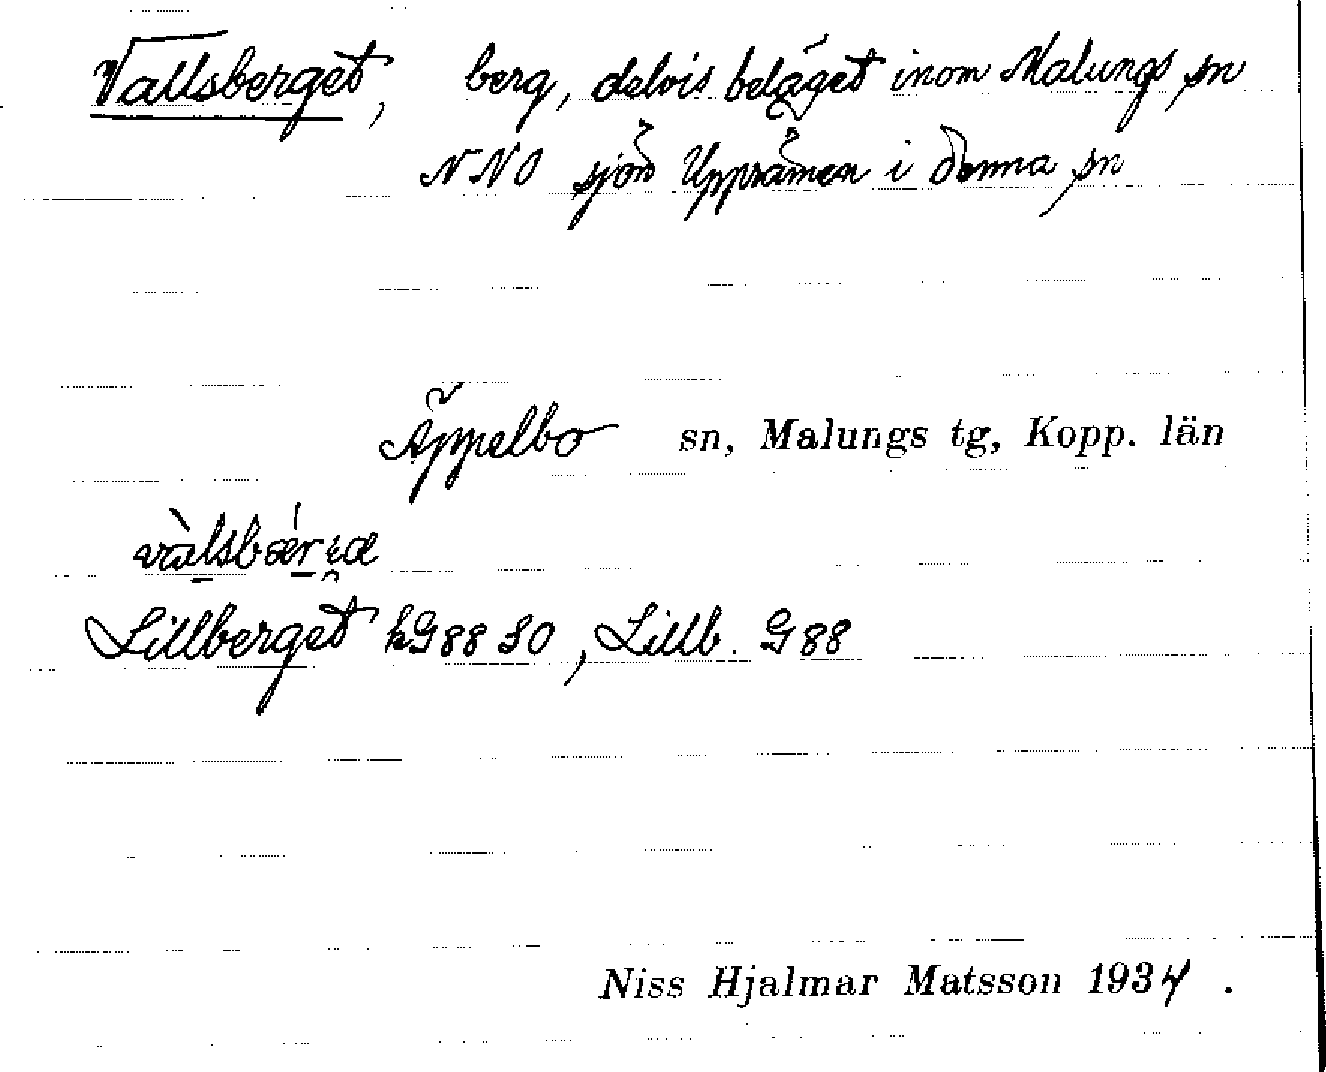 Vallsberget, berg, delvis beläget inom Malungs sn
NNO sjön Uppråmen i denna sn
Äppelbo sn, Malungs tg, Kopp. län
Lillberget kG88 SO, Lillb. G88
Niss Hjalmar Matsson 1934.